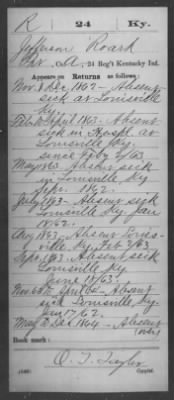 R 24 Ky.
Jefferson Roark
Pvt. Co. A, 24 Reg't Kentucky Inf.
Appears on Returns as follows:
Nov. & Dec. 1862 - Absent
sick at Louisville
Ky.
Feb. to April 1863. Absent
sick in Hospl. at
Louisville Ky.
since Feby 2/63
May 1863 Absent sick
in Louisville Ky
1862.
July 1863 - Absent sick
Louisville Ky. Jan
18/62.
Aug 1863. Absent Louis-
ville Ky. Feb 2/63
Sept. 1863. Absent sick
Louisville Ky.
June 18/63.
Nov. 63 to April 64 - Absent
sick Louisville Ky.
Jan 17/62.
May & Dec. 1864 - Absent
(over)
Book mark:
O. T. Taylor
Copyist.